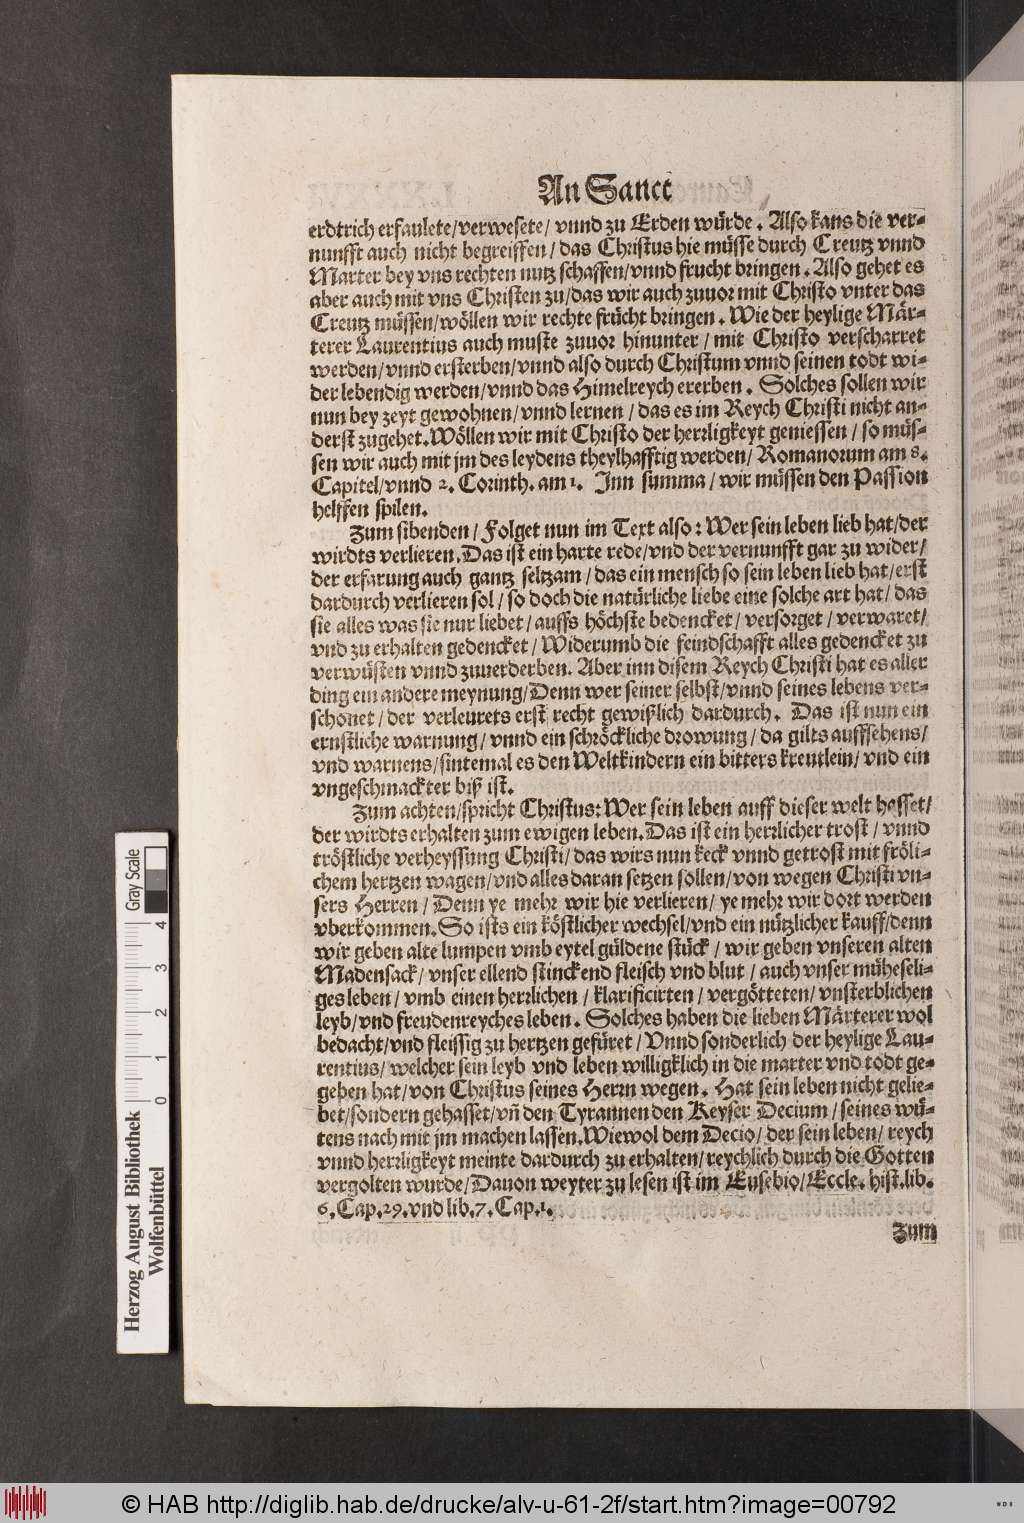 An Sanct
erdtrich erfaulete/verwesete/ vnnd zu Erden würde. Also kans die ver-
nunfft auch nicht begreiffen/ das Christus hie müsse durch Creutz vnnd
Marter bey vns rechten nutz schaffen/vnnd frucht bringen. Also gehet es
aber auch mit vns Christen zu/das wir auch zuuor mit Christo vnter das
Creutz müssen/wöllen wir rechte frücht bringen. Wie der heylige Mär-
terer Laurentius auch muste zuuor hinunter/ mit Christo verscharret
werden/vnnd ersterben/vnnd also durch Christum vnnd seinen todt wi-
der lebendig werden/vnnd das Himelreych ererben. Solches sollen wir
nun bey zeyt gewohnen/vnnd lernen/ das es im Reych Christi nicht an-
derst zugehet. Wöllen wir mit Christo der herrligkeyt geniessen/ so müs-
sen wir auch mit jm des leydens theylhafftig werden/ Romanorum am 8.
Capitel/vnnd 2. Corinth. am 1. Inn summa/ wir müssen den Passion
helffen spilen.
Zum sibenden/ Folget nun im Text also: Wer sein leben lieb hat/der
wirdts verlieren. Das ist ein harte rede/vnd der vernunfft gar zu wider/
der erfarung auch gantz seltzam/ das ein mensch so sein leben lieb hat/erst
dardurch verlieren sol/ so doch die natürliche liebe eine solche art hat/ das
sie alles was sie nur liebet/ auffs höchste bedencket/ versorget/ verwaret/
vnd zu erhalten gedencket/ Widerumb die feindschafft alles gedencket zu
verwüsten vnnd zuuerderben. Aber inn disem Reych Christi hat es aller
ding ein andere meynung/ Denn wer seiner selbst/vnnd seines lebens ver-
schonet/ der verleurets erst recht gewißlich dardurch. Das ist nun ein
ernstliche warnung/ vnnd ein schröckliche drowung/ da gilts auffsehens/
vnd warnens/sintemal es den Weltkindern ein bitters kreutlein/ vnd ein
vngeschmackter biß ist.
Zum achten/spricht Christus: Wer sein leben auff dieser welt hasset/
der wirdts erhalten zum ewigen leben. Das ist ein herrlicher trost/ vnnd
tröstliche verheyssung Christi/ das wirs nun keck vnnd getrost mit fröli-
chem hertzen wagen/vnd alles daran setzen sollen/von wegen Christi vn-
sers Herren/ Denn ye mehr wir hie verlieren/ ye mehr wir dort werden
vberkommen. So ists ein köstlicher wechsel/vnd ein nützlicher kauff/denn
wir geben alte lumpen vmb eytel güldene stück/ wir geben vnseren alten
Madensack/ vnser ellend stinckend fleisch vnd blut/ auch vnser müheseli-
ges leben/ vmb einen herrlichen/ klarificirten/ vergötteten/ vnsterblichen
leyb/vnd freudenreyches leben. Solches haben die lieben Märterer wol
bedacht/vnd fleissig zu hertzen gefüret/ Vnnd sonderlich der heylige Lau-
rentius/ welcher sein leyb vnd leben willigklich in die marter vnd todt ge-
geben hat/von Christus seines Herrn wegen. Hat sein leben nicht gelie-
bet/sondern gehasset/vñ den Tyrannen den Keyser Decium/ seines wü-
tens nach mit jm machen lassen. Wiewol dem Decio/ der sein leben/ reych
vnnd herrligkeyt meinte dardurch zu erhalten/ reychlich durch die Gotten
vergolten wurde/ Dauon weyter zu lesen ist im Eusebio/ Eccle. hist. lib.
6. Cap. 29. vnd lib. 7. Cap. 1.
Zum
Herzog August Bibliothek
Wolfenbüttel
0 1 2 3 4
Gray Scale
© HAB http://diglib.hab.de/drucke/alv-u-61-2f/start.htm?image=00792